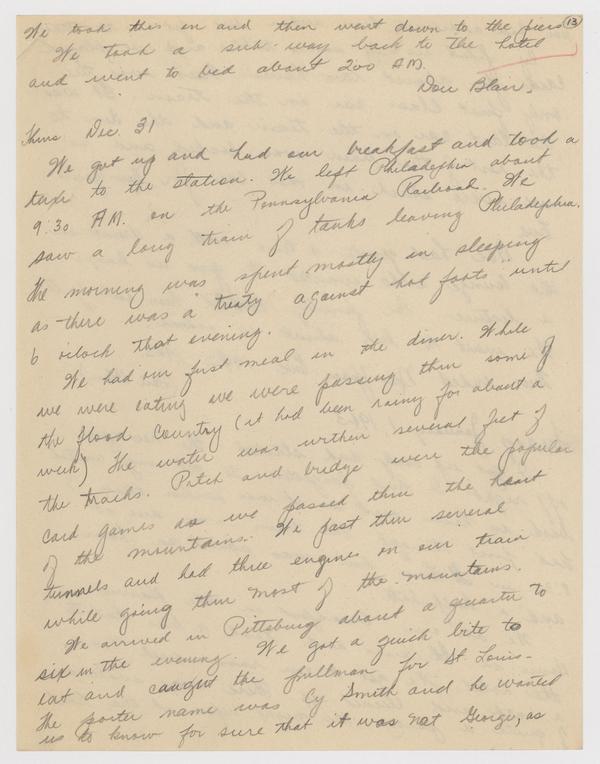 We took this in and then went down to the piers (13)
We took a sub-way back to the hotel
and went to bed about 200 A.M.
Don Blair.
Thurs Dec. 31
We got up and had our breakfast and took a
taxi to the station. We left Philadelphia about
9:30 A.M. on the Pennsylvania Railroad. We
saw a long train of tanks leaving Philadelphia.
The morning was spent mostly in sleeping
as there was a "treaty" against hot foots until
6 oclock that evening.
We had our first meal in the diner. While
we were eating we were passing thru some of
the flood country (it had been rainy for about a
week) The water was within several feet of
the tracks. Pitch and bridge were the popular
card games as we passed thru the heart
of the mountains. We past thru several
tunnels and had three engines on our train
while going thru most of the mountains.
We arrived in Pittsburg about a quarter to
six in the evening. We got a quick bite to
eat and caught the pullman for St Louis.
The porter name was Cy Smith and he wanted
us to know for sure that it was not George, as